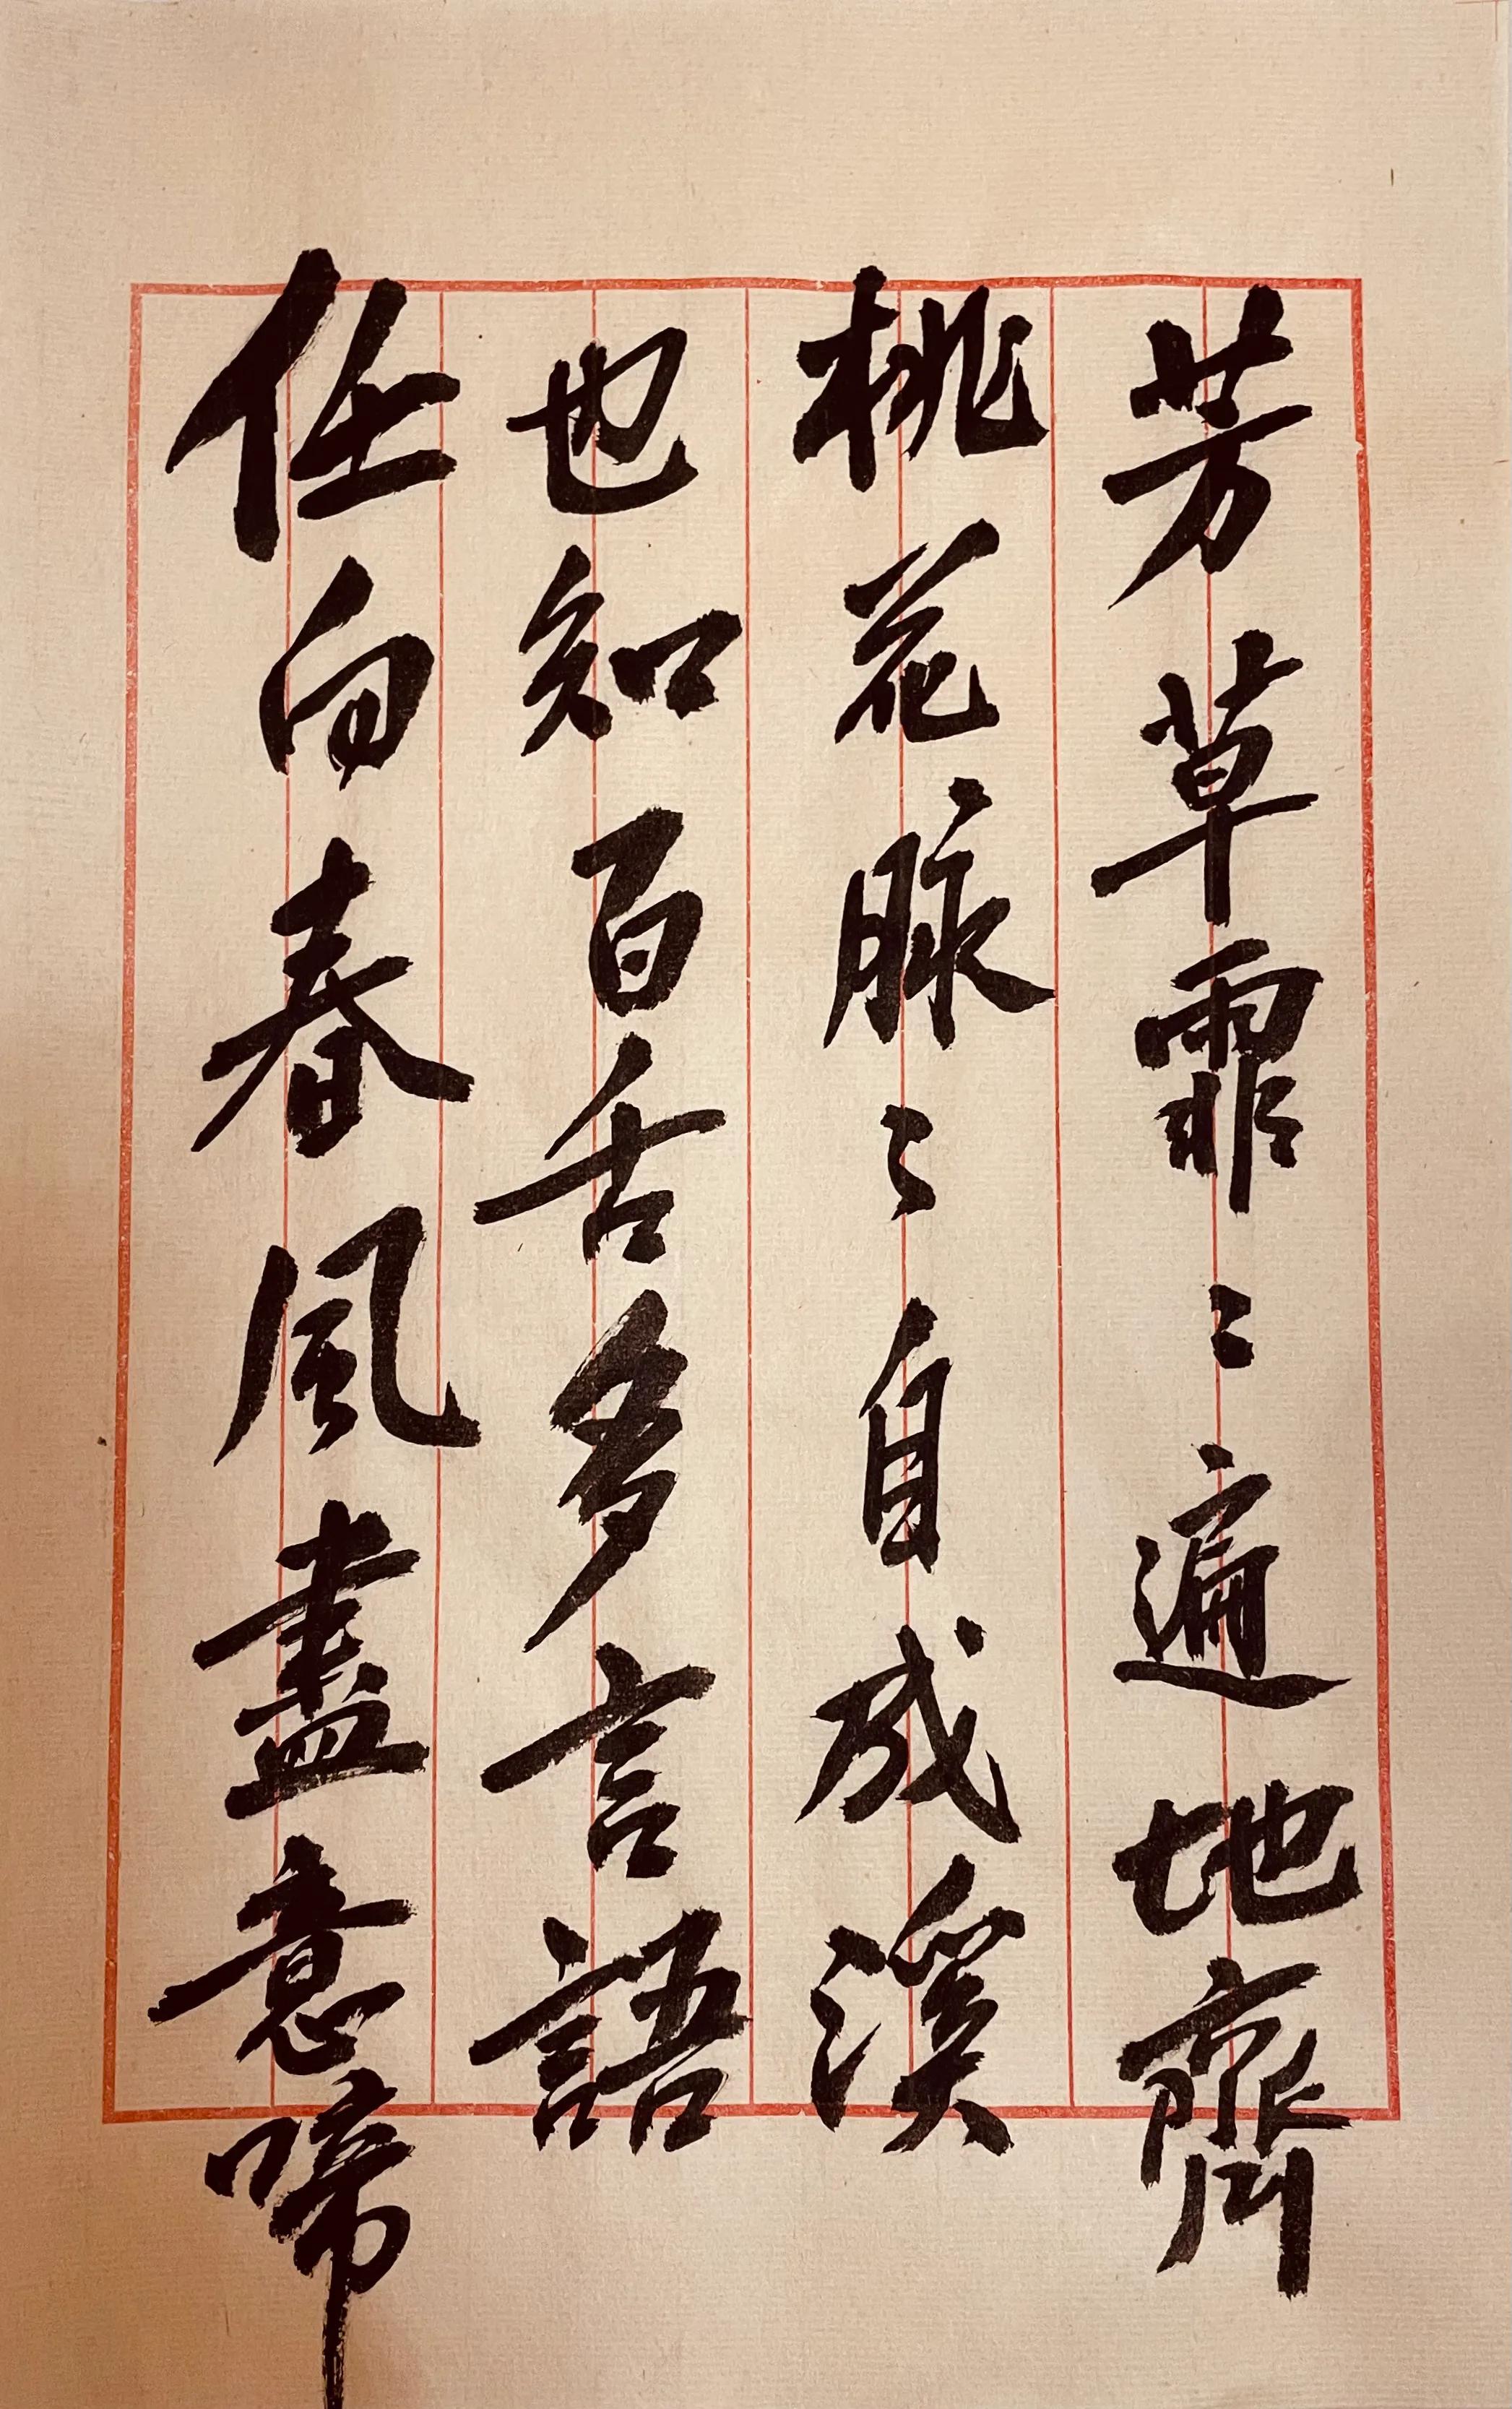 芳草霏〻遍地齊
桃花脉〻自成溪
也知百舌多言語
任向春風盡意啼